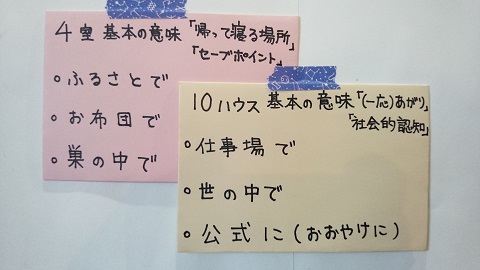 4室 基本の意味「帰って寝る場所」
「セーブポイント」
ふるさとで
お布団で
巣の中で
10ハウス 基本の意味「(一応)あがり」
「社会的認知」
仕事場で
世の中で
公式に(おおやけに)